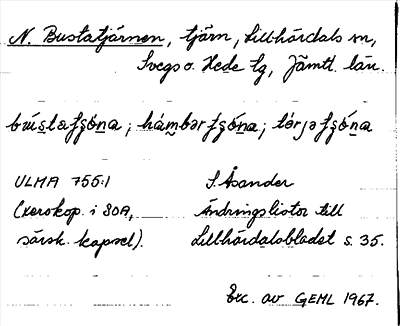 N. Bustatjärnen, tjärn, Lillhärdals sn,
Svegs o. Hede tg, Jämtl. län.
bústafʂóna; hámbərfʂóna; tǿrjəfʂóna
ULMA 755:1
S. Åsander
(xerokop. i SOA,
Ändringslistor till
särsk. kapsel).
Lillhärdalsbladet s. 35.
Exc. av GEHL 1967.